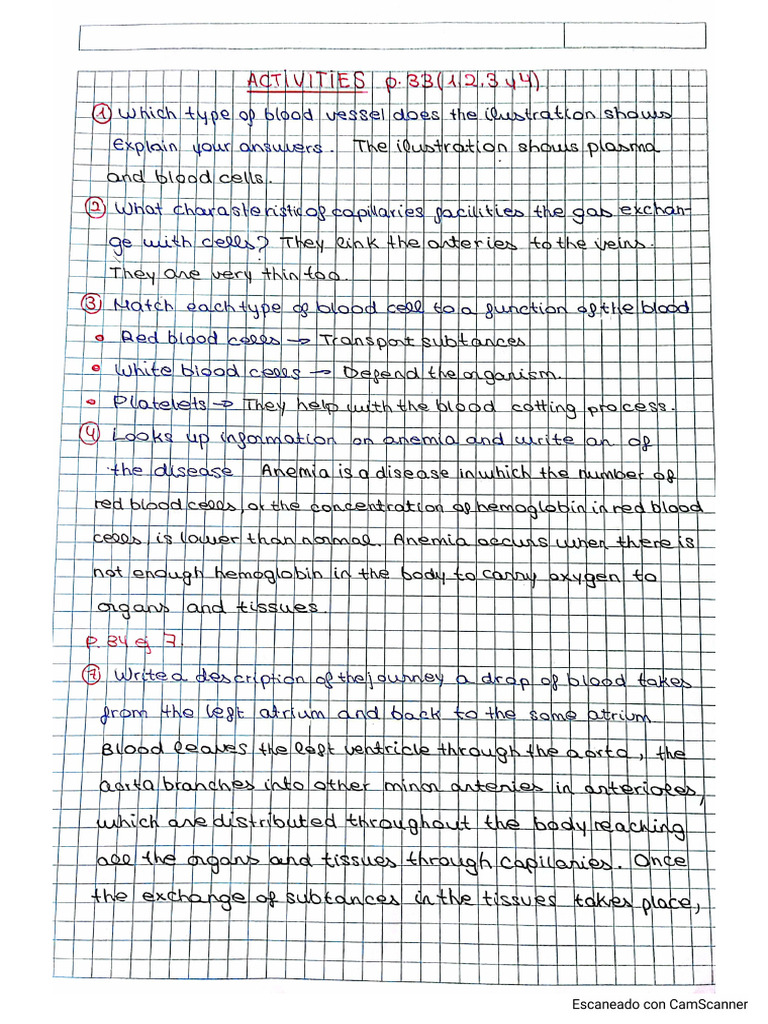 ACTIVITIES p.33(1,2,3 y4)
1 Which type of blood vessel does the illustration shows
Explain your answers. The illustration shows plasma
and blood cells.
2 What charasteristic of capillaries facilities the gas exchan-
ge with cells? They link the arteries to the veins.
They are very thin too.
3 Match each type of blood cell to a function of the blood
• Red blood cells → Transport subtances
• White blood cells → Defend the organism.
• Platelets → They help with the blood cotting process.
4 Looks up information on anemia and write an of
the disease Anemia is a disease in which the number of
red blood cells, or the concentration of hemoglobin in red blood
cells, is lower than normal. Anemia occurs when there is
not enough hemoglobin in the body to carry oxygen to
organs and tissues.
p.34 ej 7.
7 Write a description of the journey a drop of blood takes
from the left atrium and back to the same atrium
Blood leaves the left ventricle through the aorta, the
aorta branches into other minor arteries in arterioles,
which are distributed throughout the body reaching
all the organs and tissues through capilaries. Once
the exchange of subtances in the tissues takes place,
Escaneado con CamScanner